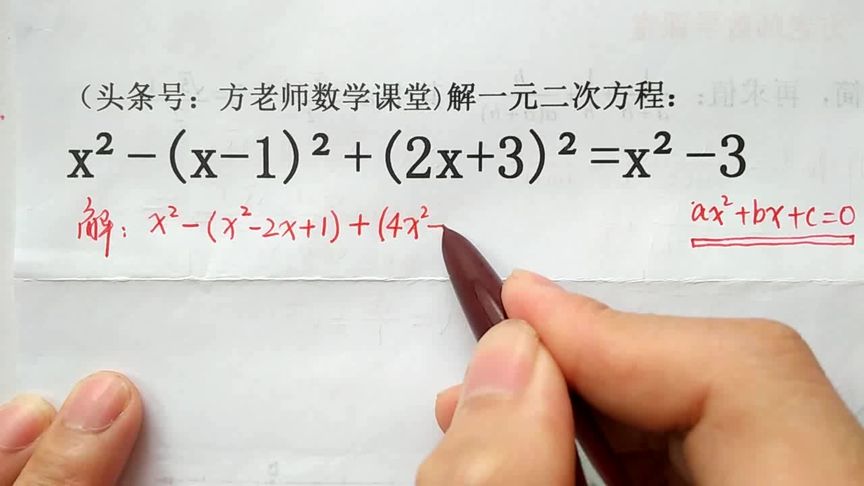 （头条号：方老师数学课堂)解一元二次方程：
x²-(x-1)²+(2x+3)²=x²-3
解：x²-(x²-2x+1)+(4x²
ax²+bx+c=0